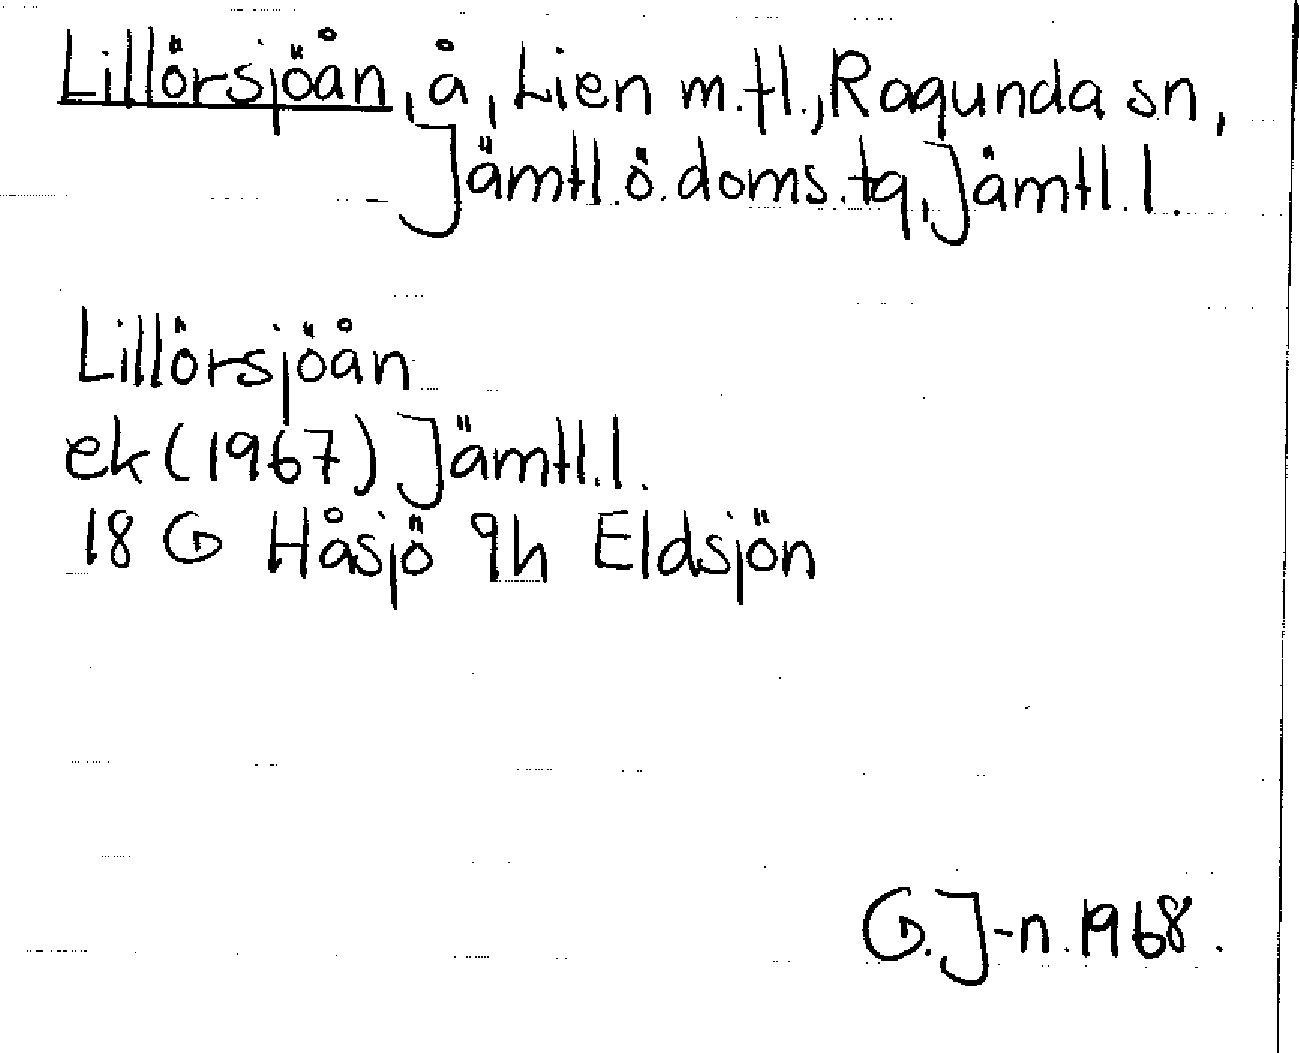 Lillörsjöån, å, Lien m.fl., Ragunda sn,
Jämtl.ö.doms.tg, Jämtl.l.
Lillörsjöån
ek (1967) Jämtl.l.
18 G Håsjö 9h Eldsjön
G.J-n.1968.